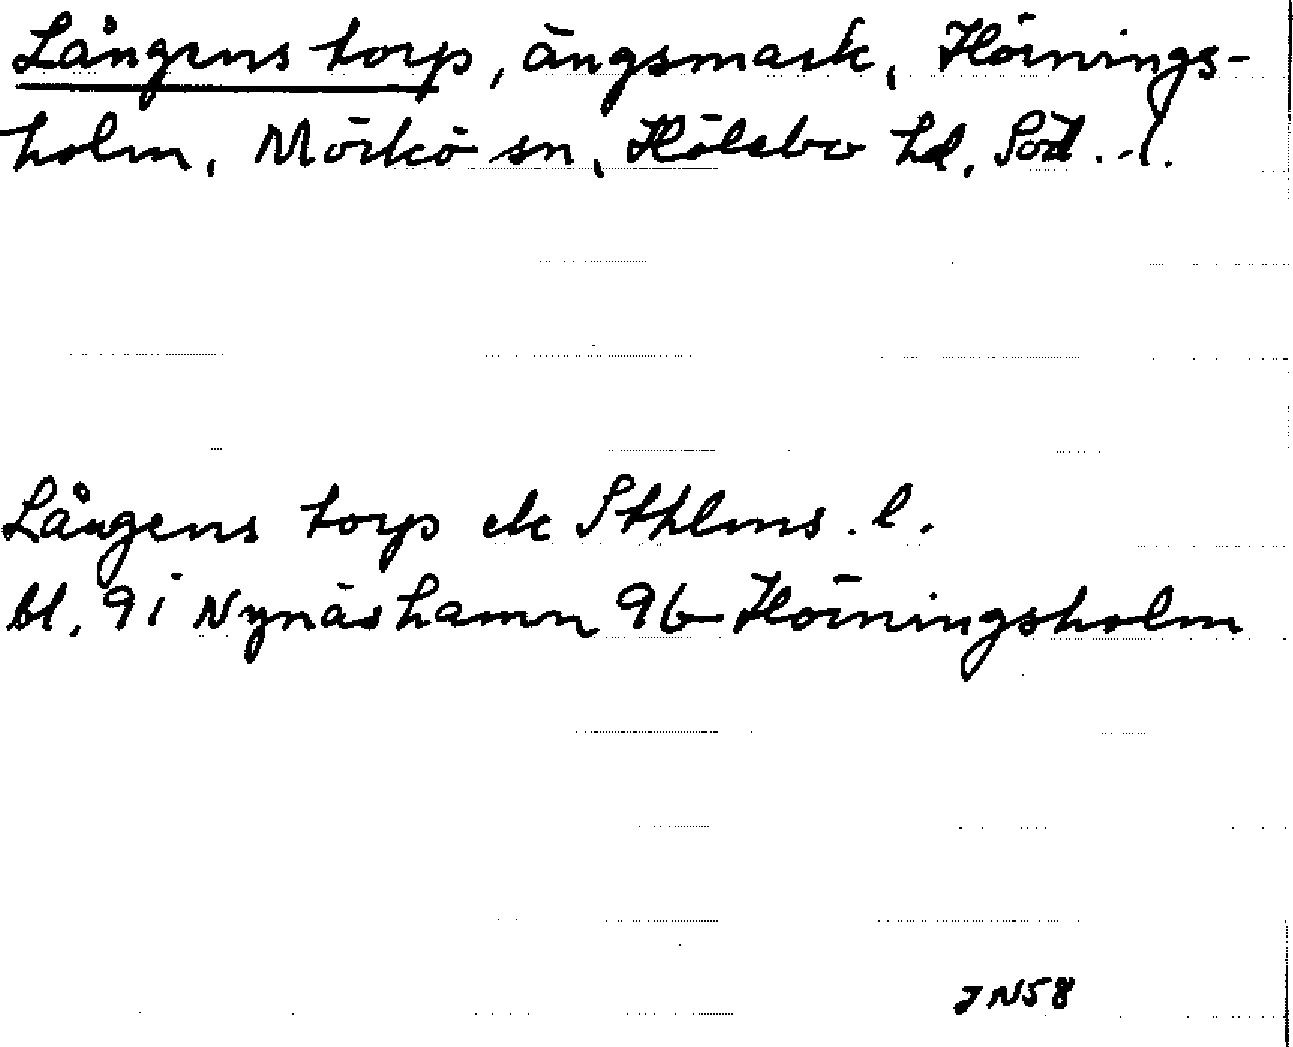 Långens torp, ängsmark, Hörnings-
holm, Mörkö sn, Hölebo hd, Söd. l.
Långens torp ek Sthlms. l.
bl. 9i Nynäshamn 96 Hörningsholm
JN58